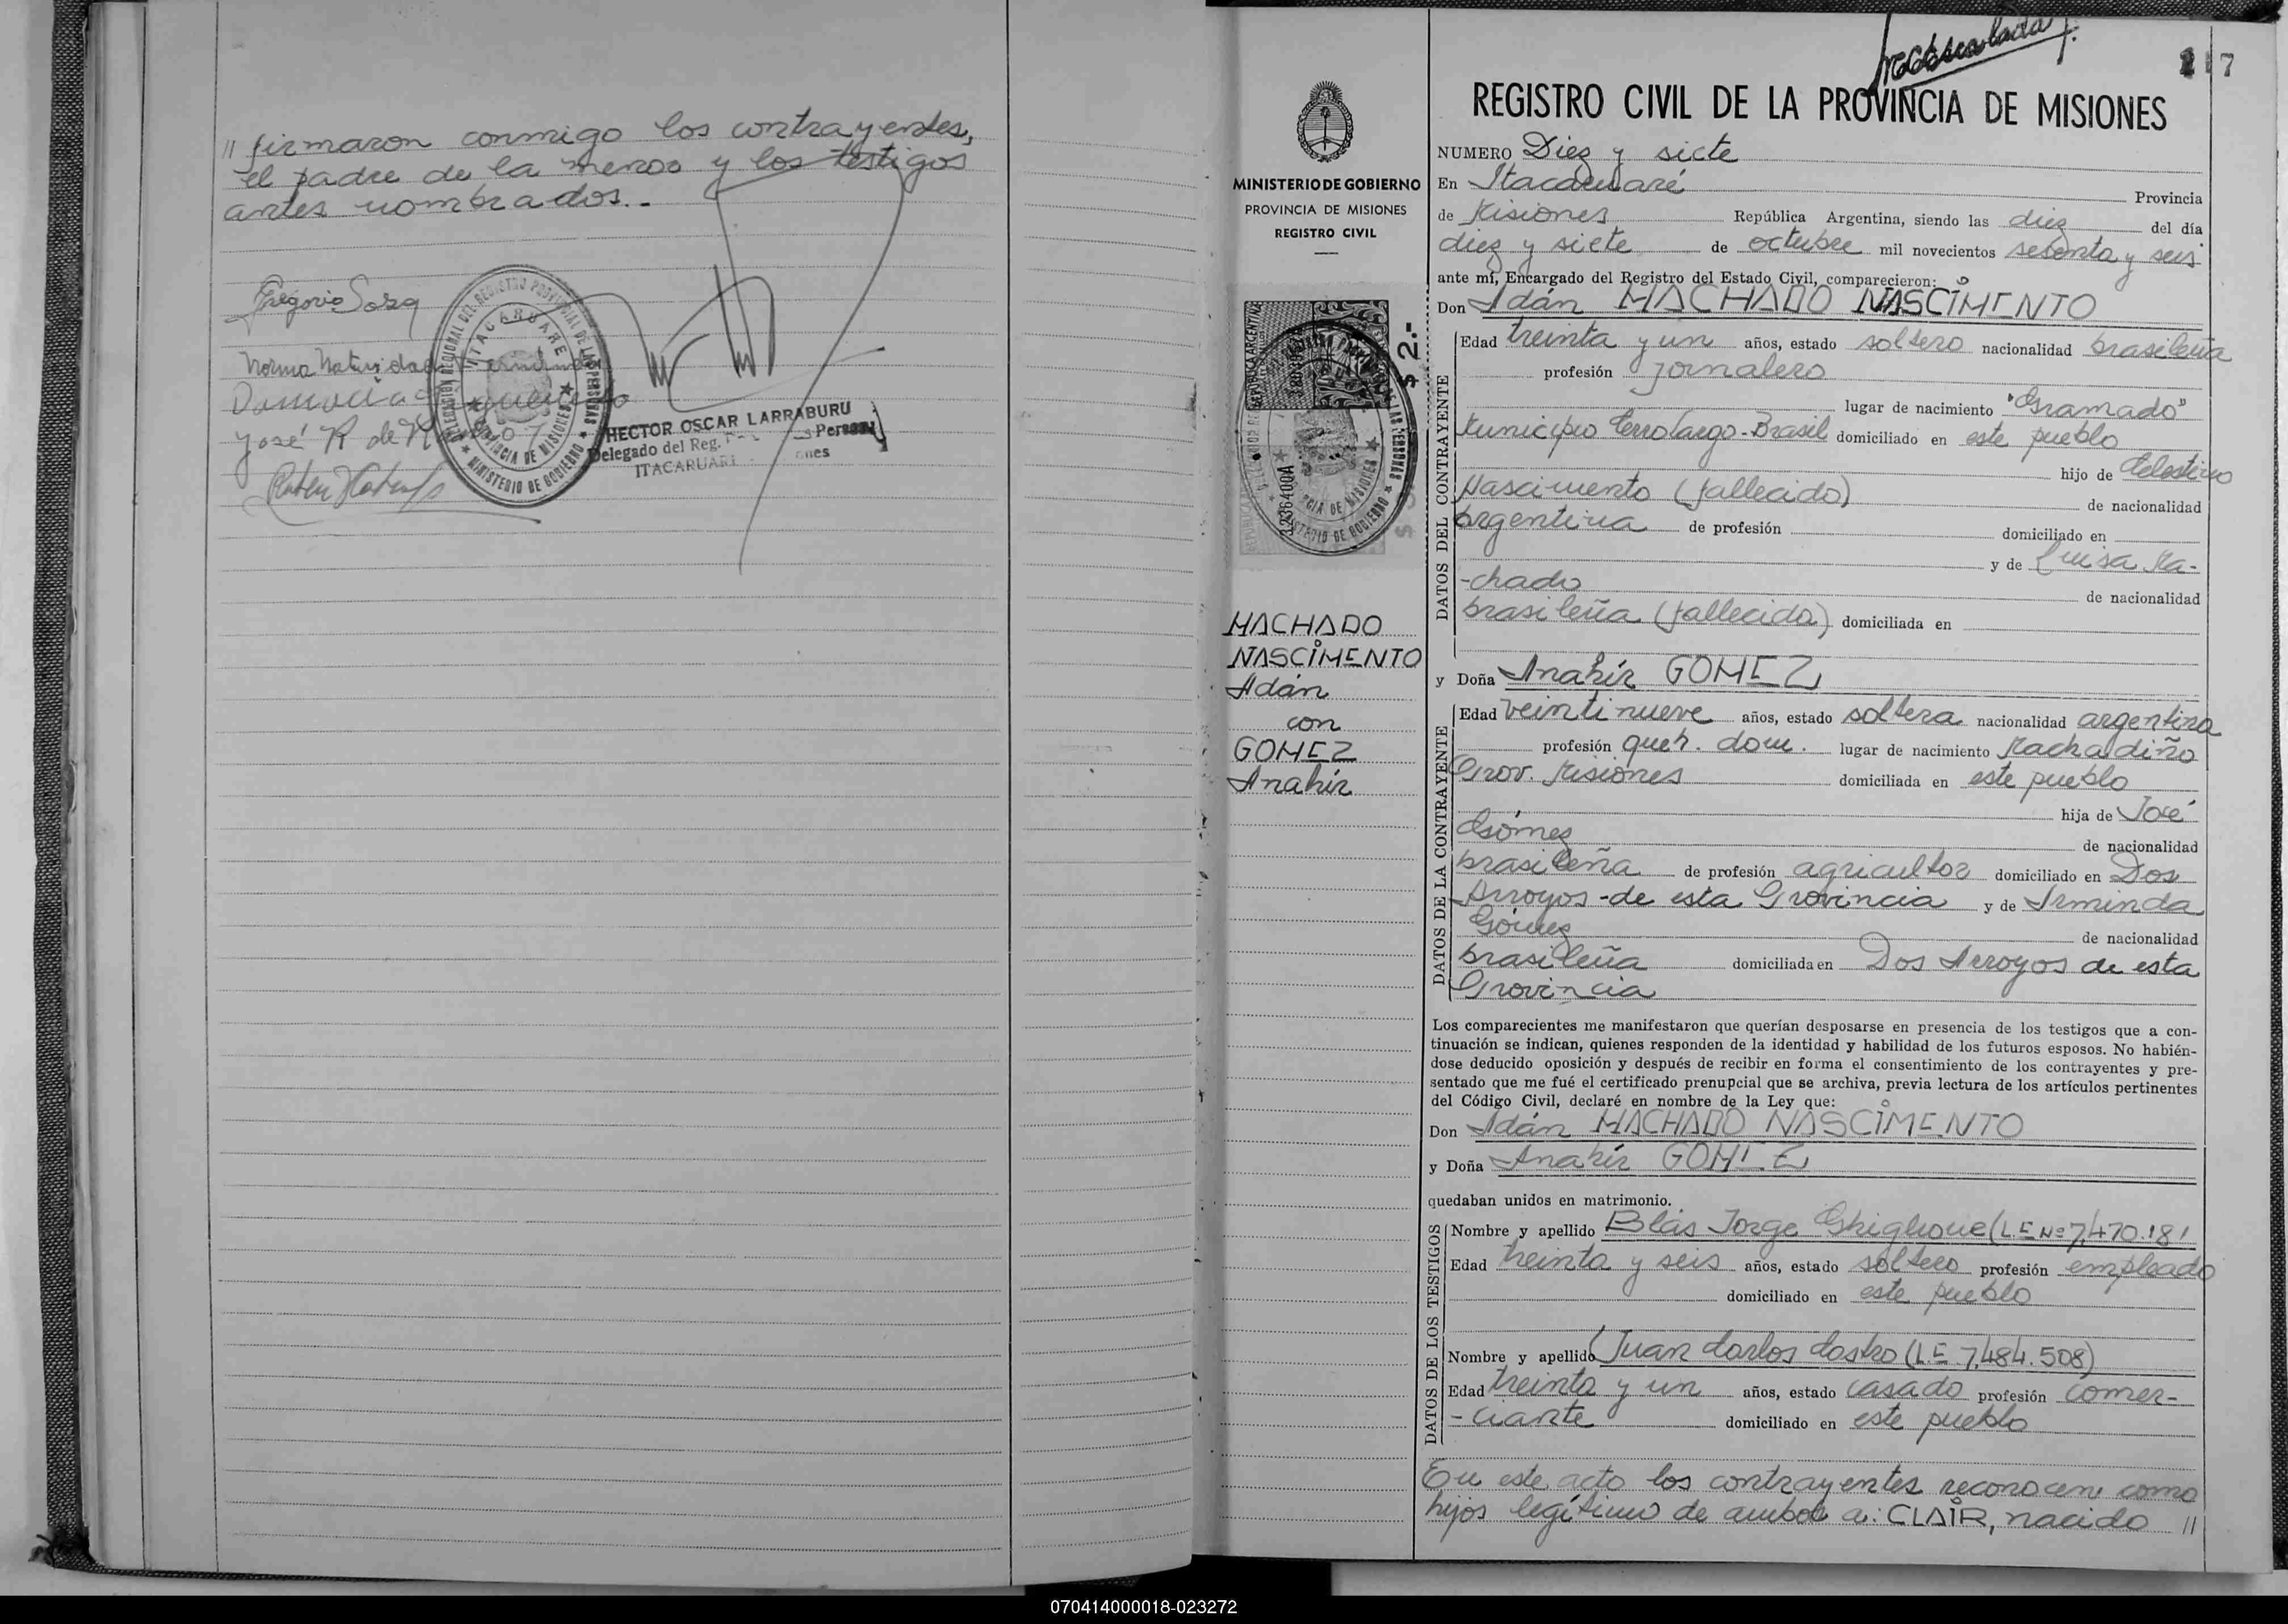 " firmaron conmigo los contrayentes,
el padre de la menor y los testigos
antes nombrados.-
Gregorio Sosa
Norma Natividad
José R de
HECTOR OSCAR LARRABURU
Delegado del Reg. Personas
ITACARUARE
DELEGACION REGIONAL DEL REGISTRO PROVINCIAL DE LAS PERSONAS
ITACARUARE
PROVINCIA DE MISIONES
MINISTERIO DE GOBIERNO
7
REGISTRO CIVIL DE LA PROVINCIA DE MISIONES
MINISTERIO DE GOBIERNO
PROVINCIA DE MISIONES
REGISTRO CIVIL
$ 2.-
MACHADO
NASCIMENTO
Adán
con
GOMEZ
Anahír
NUMERO Diez y siete
En Itacaruaré Provincia
de Misiones República Argentina, siendo las diez del día
diez y siete de octubre mil novecientos sesenta y seis
ante mí, Encargado del Registro del Estado Civil, comparecieron:
Don Adán MACHADO NASCIMENTO
DATOS DEL CONTRAYENTE
Edad treinta y un años, estado soltero nacionalidad brasileña
profesión jornalero
lugar de nacimiento "Gramado"
Municipio Cerro Largo-Brasil domiciliado en este pueblo
hijo de Celestino
Nascimento (fallecido) de nacionalidad
argentina de profesión domiciliado en
y de Luisa Ma-
-chado de nacionalidad
brasileña (fallecida) domiciliada en
y Doña Anahír GOMEZ
DATOS DE LA CONTRAYENTE
Edad veintinueve años, estado soltera nacionalidad argentina
profesión queh. dom. lugar de nacimiento Machadiño
Prov. Misiones domiciliada en este pueblo
hija de José
Gómez de nacionalidad
brasileña de profesión agricultor domiciliado en Dos
Arroyos-de esta Provincia y de Arminda
Gómez de nacionalidad
brasileña domiciliada en Dos Arroyos de esta
Provincia
Los comparecientes me manifestaron que querían desposarse en presencia de los testigos que a con-
tinuación se indican, quienes responden de la identidad y habilidad de los futuros esposos. No habién-
dose deducido oposición y después de recibir en forma el consentimiento de los contrayentes y pre-
sentado que me fué el certificado prenupcial que se archiva, previa lectura de los artículos pertinentes
del Código Civil, declaré en nombre de la Ley que:
Don Adán MACHADO NASCIMENTO
y Doña Anahír GOMEZ
quedaban unidos en matrimonio.
DATOS DE LOS TESTIGOS
Nombre y apellido Blás Jorge Ghiglione (L.E Nº 7,470.181
Edad treinta y seis años, estado soltero profesión empleado
domiciliado en este pueblo
Nombre y apellido Juan Carlos Castro (LE 7,484.508)
Edad treinta y un años, estado casado profesión comer-
-ciante domiciliado en este pueblo
En este acto los contrayentes reconocen como
hijos legítimo de ambos a: CLAIR, nacido "
070414000018-023272